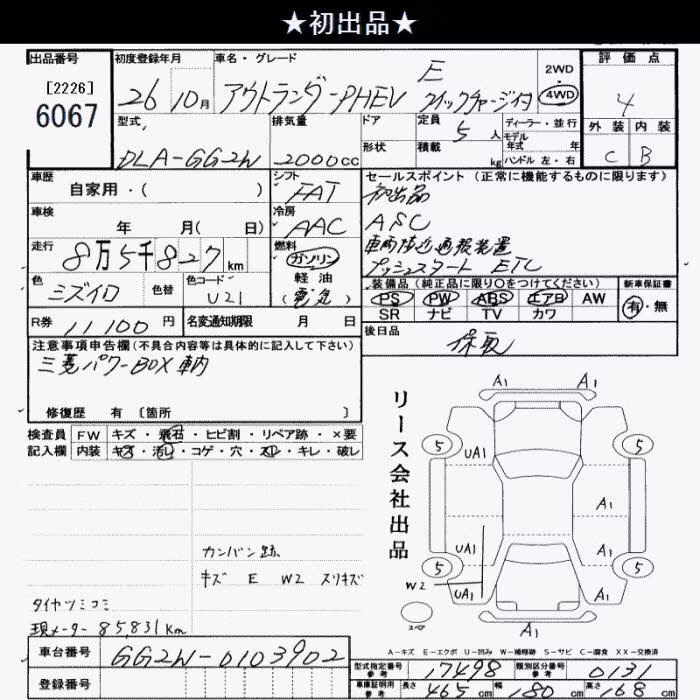 ★初出品★
出品番号
[2226]
6067
初度登録年月
26 10月
車名・グレード
E
アウトランダーPHEV クイックチャージ付
2WD
4WD
評価点
4
外装 内装
C B
型式
DLA-GG2W
排気量
2000cc
ドア
形状
定員 5人
積載 kg
ディーラー・並行
モデル年式 年
ハンドル 左・右
車歴
自家用・( )
シフト
FAT
冷房
AAC
車検
年 月( 日)
走行
8万5千827km
燃料
ガソリン
軽油
(電気)
色
ミズイロ
色替
色コード
U21
R券 11100円
名変通知期限 月 日
セールスポイント(正常に機能するものに限ります)
初出品
ASC
車両接近通報装置
プッシュスタート ETC
装備品(純正品に限り○をつけてください)
PS PW ABS エアB AW
SR ナビ TV カワ
新車保証書
有・無
後日品
保取
注意事項申告欄(不具合内容等は具体的に記入して下さい)
三菱パワーBOX車内
修復歴 有 〔箇所 〕
検査員記入欄
FW キズ・飛石・ヒビ割・リペア跡・×要
内装 キズ・汚レ・コゲ・穴・スレ・キレ・破レ
カンバン跡
キズ E W2 スリキズ
タイヤツミコミ
現メーター 85,831km
リース会社出品
A1 A1
5 5
UA1
A1
UA1 A1
W2
5 5
UA1 A1
A1
スペア
A-キズ E-エクボ U-凹み W-補修跡 S-サビ C-腐食 XX-交換済
車台番号 GG2W-0103902
登録番号
型式指定番号 参考 17498
類別区分番号 参考 0131
車庫証明用 参考 長さ 465cm 幅 180cm 高さ 168cm